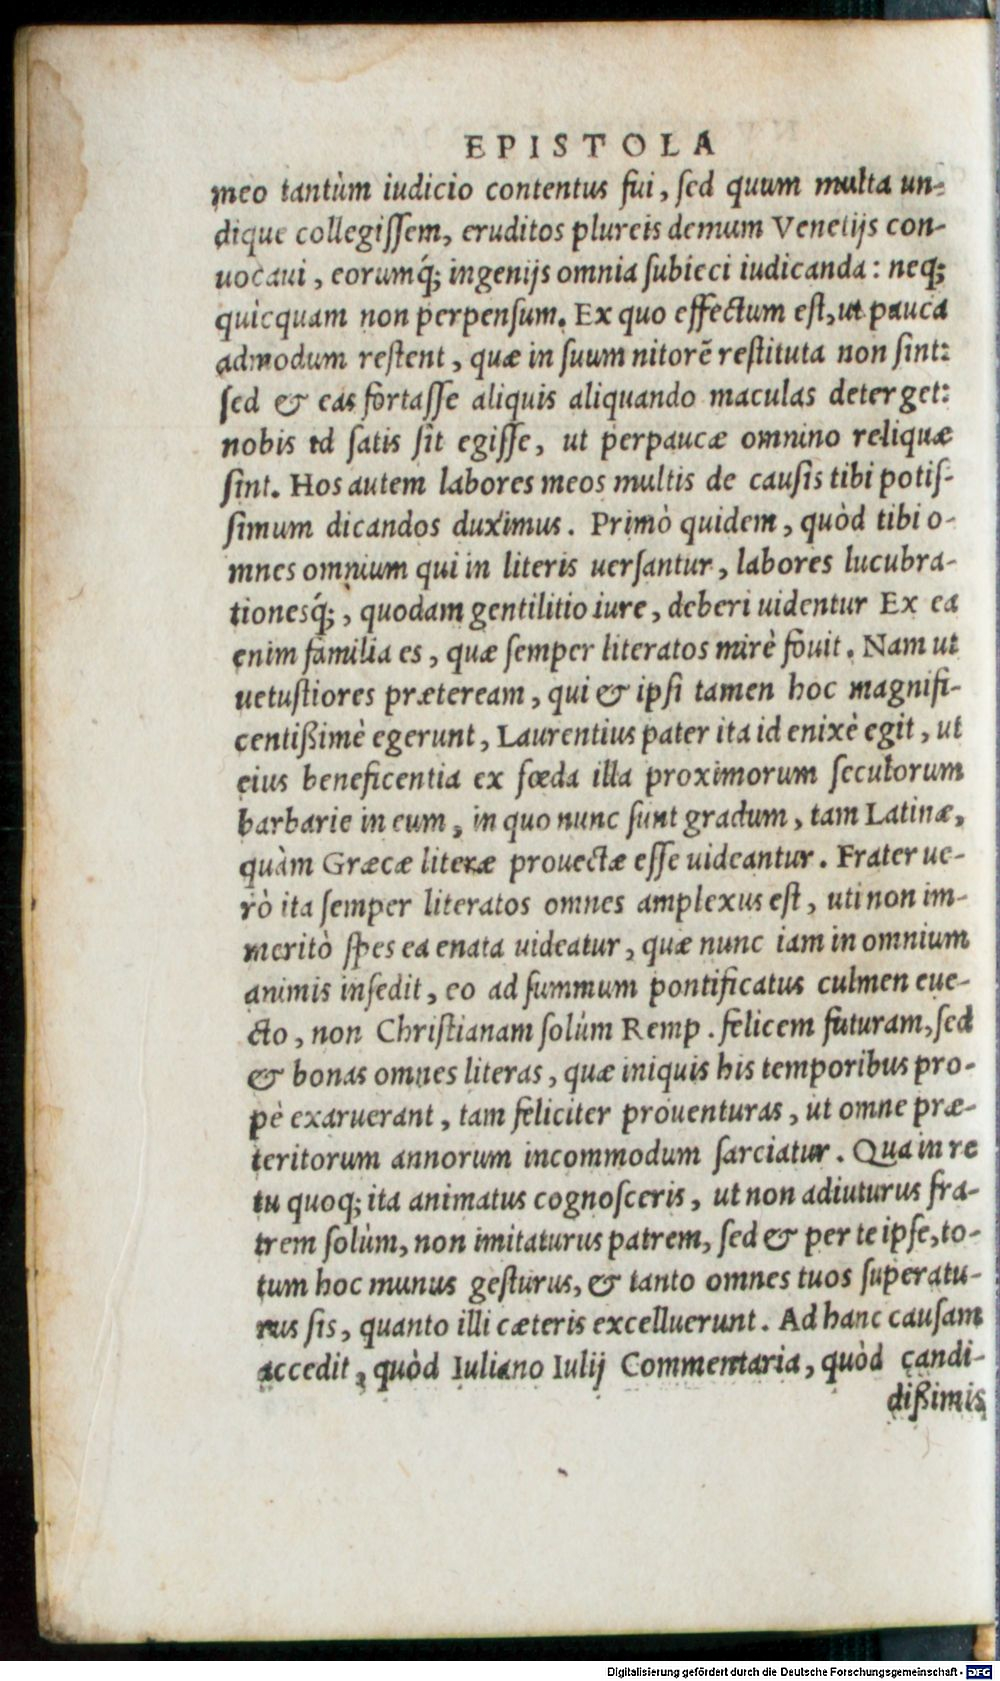 EPISTOLA
meo tantùm iudicio contentus fui, sed quum multa un-
dique collegissem, eruditos plureis demum Venetijs con-
uocaui, eorumq́; ingenijs omnia subieci iudicanda: neq;
quicquam non perpensum. Ex quo effectum est, ut pauca
admodum restent, quæ in suum nitorē restituta non sint:
sed & eas fortasse aliquis aliquando maculas deterget:
nobis id satis sit egisse, ut perpaucæ omnino reliquæ
sint. Hos autem labores meos multis de causis tibi potis-
simum dicandos duximus. Primò quidem, quòd tibi o-
mnes omnium qui in literis uersantur, labores lucubra-
tionesq́;, quodam gentilitio iure, deberi uidentur Ex ea
enim familia es, quæ semper literatos mirè fouit. Nam ut
uetustiores præteream, qui & ipsi tamen hoc magnifi-
centißimè egerunt, Laurentius pater ita id enixè egit, ut
eius beneficentia ex fœda illa proximorum seculorum
barbarie in eum, in quo nunc sunt gradum, tam Latinæ,
quàm Græcæ literæ prouectæ esse uideantur. Frater ue-
rò ita semper literatos omnes amplexus est, uti non im-
meritò spes ea enata uideatur, quæ nunc iam in omnium
animis insedit, eo ad summum pontificatus culmen eue-
cto, non Christianam solùm Remp. felicem futuram, sed
& bonas omnes literas, quæ iniquis his temporibus pro-
pè exaruerant, tam feliciter prouenturas, ut omne præ-
teritorum annorum incommodum sarciatur. Qua in re
tu quoq; ita animatus cognosceris, ut non adiuturus fra-
trem solùm, non imitaturus patrem, sed & per te ipse, to-
tum hoc munus gesturus, & tanto omnes tuos superatu-
rus sis, quanto illi cæteris excelluerunt. Ad hanc causam
accedit, quòd Iuliano Iulij Commentaria, quòd candi-
dißimis
Digitalisierung gefördert durch die Deutsche Forschungsgemeinschaft - DFG